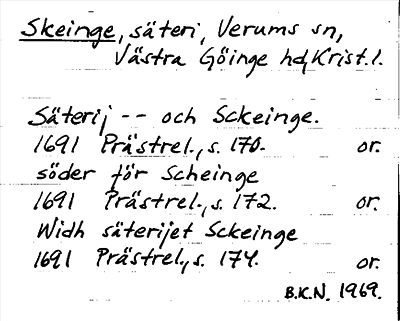 Skeinge, säteri, Verums sn,
Västra Göinge hd, Krist. l.
Säterij -- och Sckeinge.
1691 Prästrel., s. 170. or.
söder för Scheinge
1691 Prästrel., s. 172. or.
Widh säterijet Sckeinge
1691 Prästrel., s. 174. or.
B.K.N. 1969.